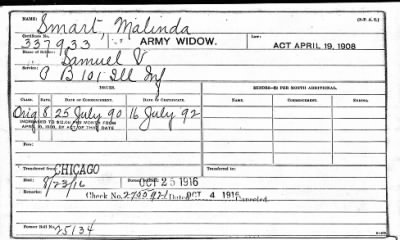 NAME: Smart, Malinda (3-P A. G.)
Certificate No. ARMY WIDOW. Law:
337933 ACT APRIL 19, 1908
Name of Soldier: Samuel V
Service: B 101 Ill Inf
ISSUES. MINORS—$2 PER MONTH ADDITIONAL.
CLASS. RATE. DATE OF COMMENCEMENT. DATE OF CERTIFICATE. NAME. COMMENCEMENT. ENDING.
Orig 8 25 July 90 16 July 92
INCREASED TO $12.00 PER MONTH FROM
APRIL 19, 1908, BY ACT OF THIS DATE
Transferred from CHICAGO Transferred to:
Died: 8/23/16 OCT 25 1916
Remarks: Check No. Dated OCT 4 1916 Canceled.
Former Roll No. 25134